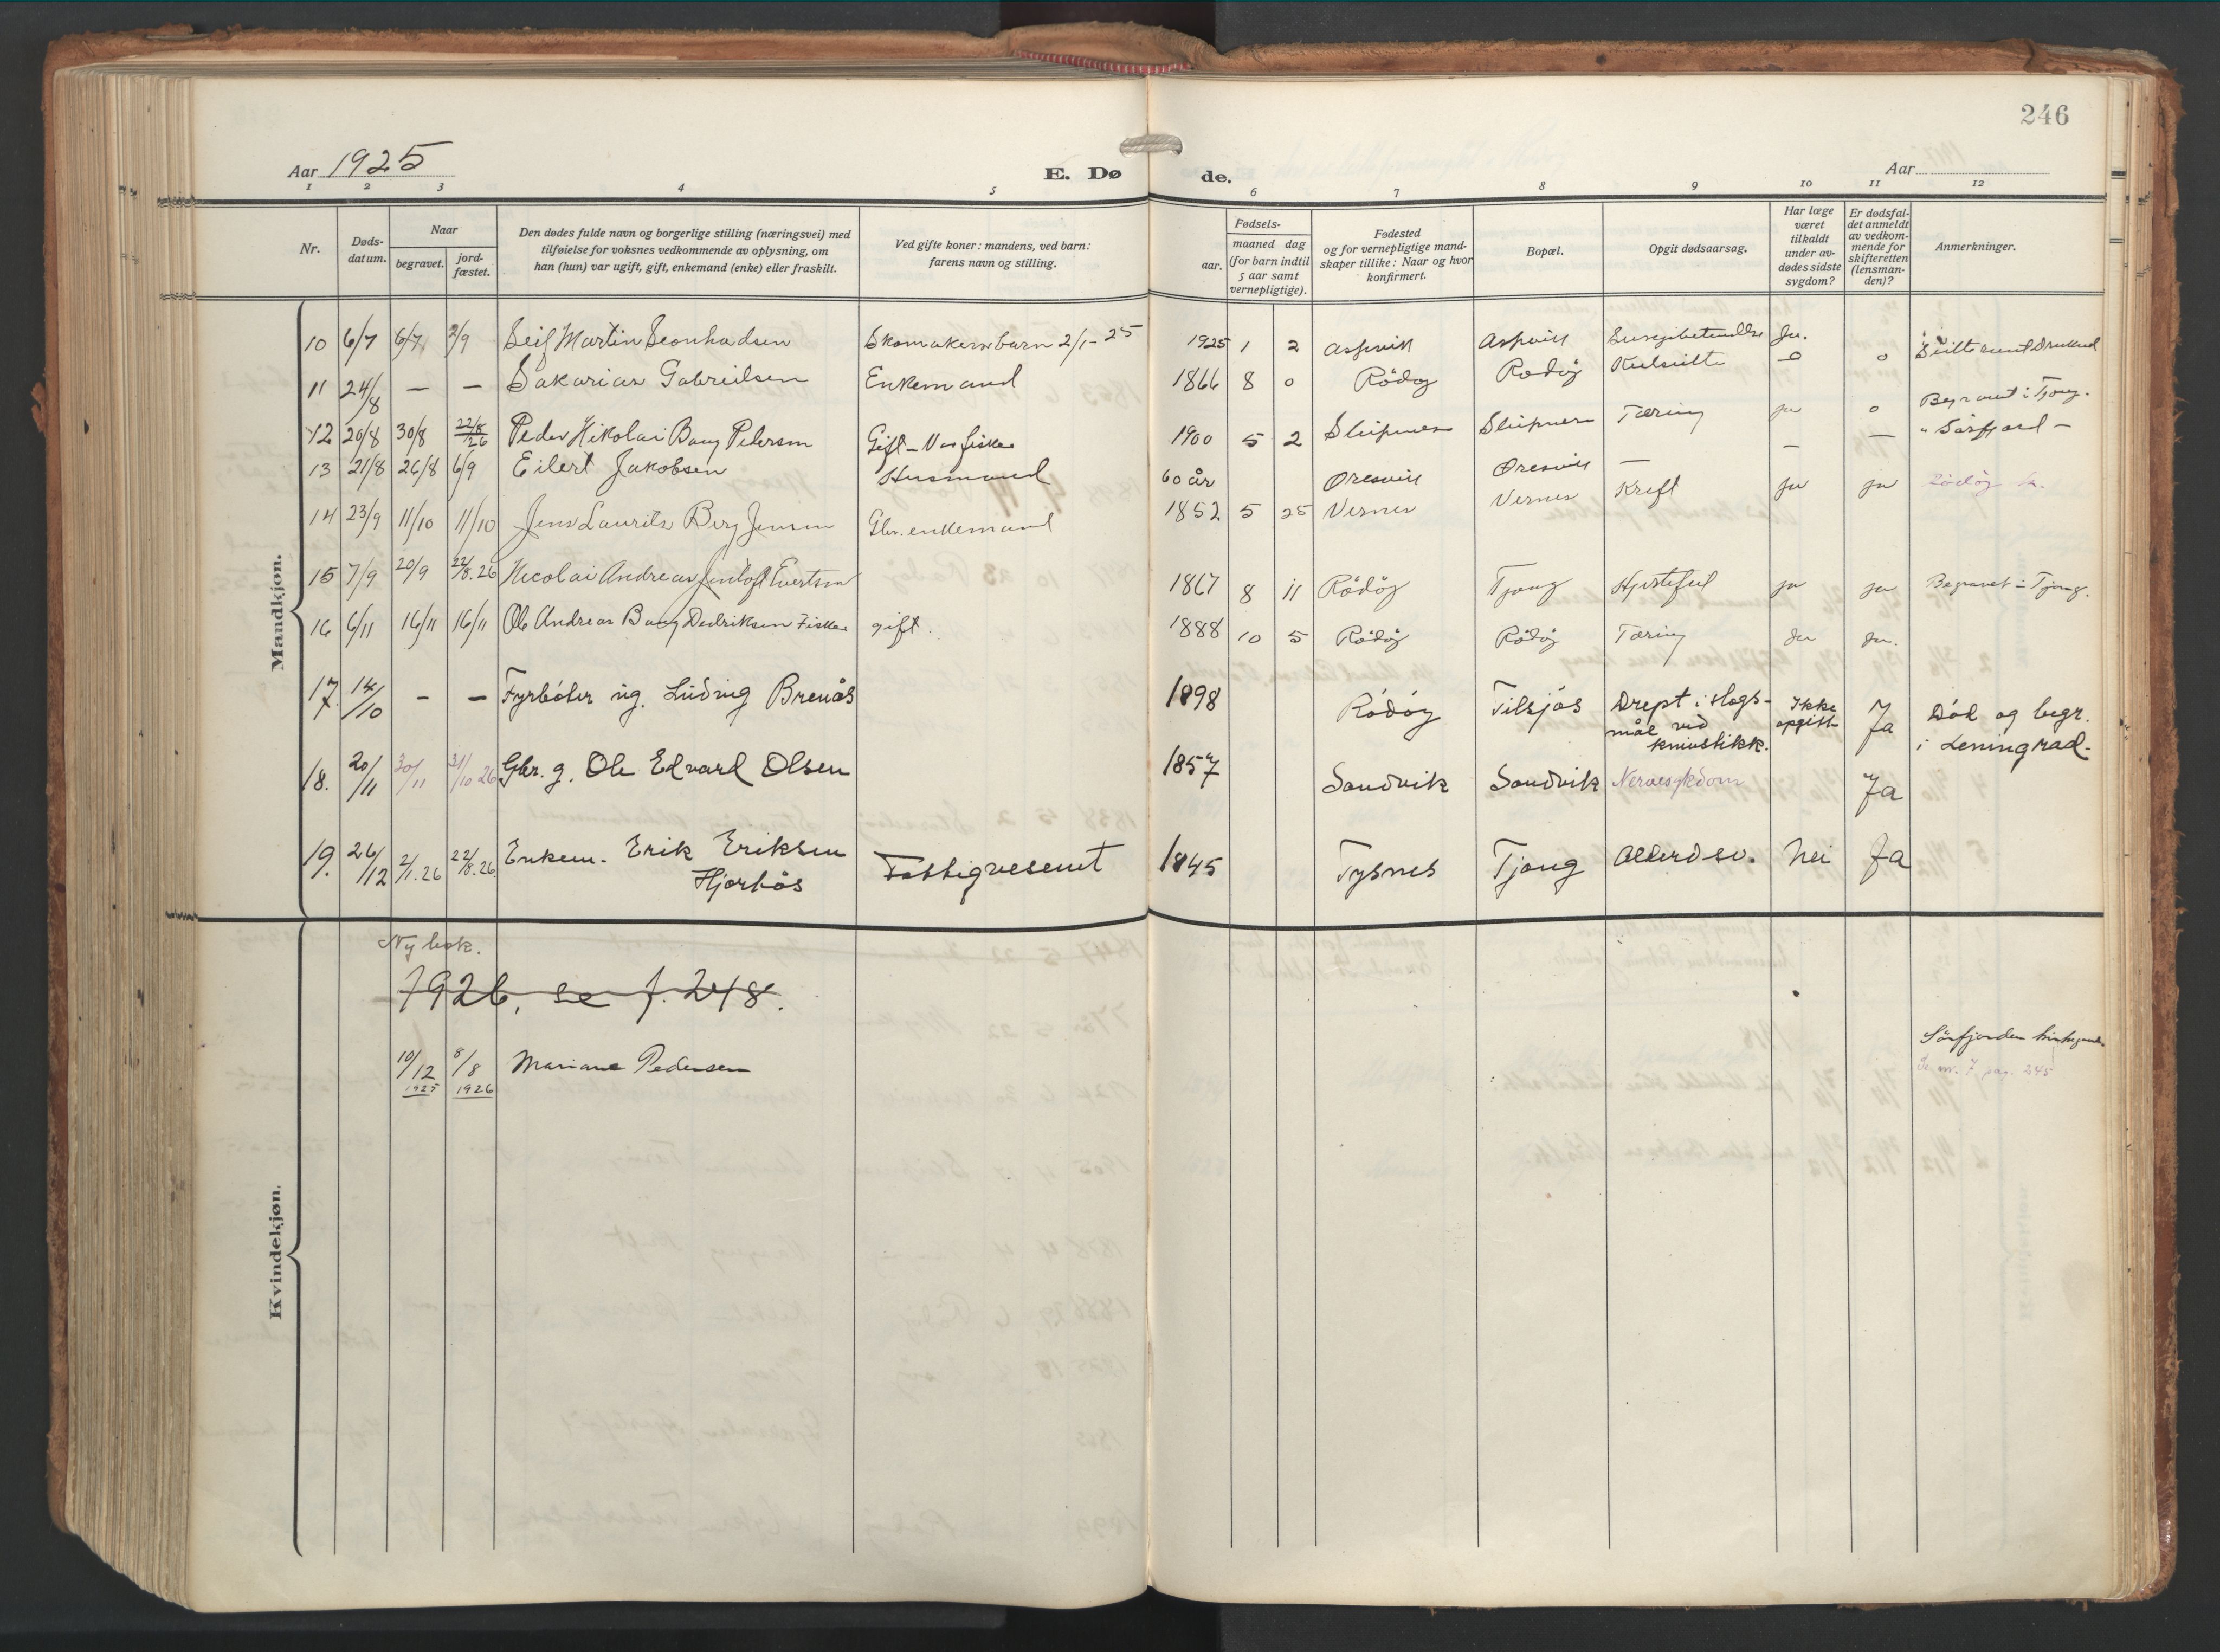 246
Aar 1925
E. Døde.
Aar
1 2 3 4 5 6 7 8 9 10 11 12
Nr.
Døds-datum.
Naar
begravet.
jord-fæstet.
Den dødes fulde navn og borgerlige stilling (næringsvei) med
tilføielse for voksnes vedkommende av oplysning, om
han (hun) var ugift, gift, enkemand (enke) eller fraskilt.
Ved gifte koner: mandens, ved barn:
farens navn og stilling.
Fødsels-
aar.
maaned dag
(for barn indtil
5 aar samt
vernepligtige).
Fødested
og for vernepligtige mand-
skaper tillike: Naar og hvor
konfirmert.
Bopæl.
Opgit dødsaarsag.
Har læge
været
tilkaldt
under av-
dødes sidste
sygdom?
Er dødsfal-
det anmeldt
av vedkom-
mende for
skifteretten
(lensman-
den)?
Anmerkninger.
Mandkjøn.
10 6/7 6/7 2/9 Leif Martin Leonhadsen Skomakersbarn 2/1-25 1925 1 2 Aspvik Aspvik Lungebetendelse Ja.
11 24/8 — — Sakarias Gabrielsen Enkemand 1866 8 0 Rödöy Rødöy 0 0
12 20/8 30/8 22/8 26 Peder Nikolai Bang Pedersen Gift - 1900 5 2 Sleipnes Sleipnes Tæring ja 0 Begravet i Tjong.
13 21/8 26/8 6/9 Eilert Jakobsen Husmand 60 år Øresvik Øresvik — — — " Sørfjord —
14 23/9 11/10 11/10 Jens Laurits Berg Jensen Gbr. enkemand 1852 5 25 Vernes Vernes Kreft ja ja Rödöy k.
15 7/9 20/9 22/8.26 Nicolai Andreas Jentoft Evertsen 1867 8 11 Rödöy Tjong Hjertefeil ja ja Begravet i Tjong.
16 6/11 16/11 16/11 Ole Andreas Bang Dedriksen Fisker gift. 1888 10 5 Rödöy Rödöy Tæring Ja ja.
17. 14/10 — — Fyrböter ug. Ludvig Brenås 1898 Rödöy Tilsjös Drept i slags-
mål ved
knivstikk. Ikke
opgitt Ja Död og begr.
i Leningrad.
18. 20/11 30/11 31/10 26 Gbr. g. Ole Edvard Olsen 1857 Sandvik Sandvik Nervesykdom Ja
19. 26/12 2/1.26 22/8.26. Enkem. Erik Eriksen
Hjortås Fattigvesenet 1845 Tysnes Tjong Alderdsv. Nei Ja
Kvindekjøn.
Ny bok.
1926, se f. 248.
10/12 1925 8/8 1926 Mariane Pedersen Sörfjorden
Se nr. 7 pag. 245